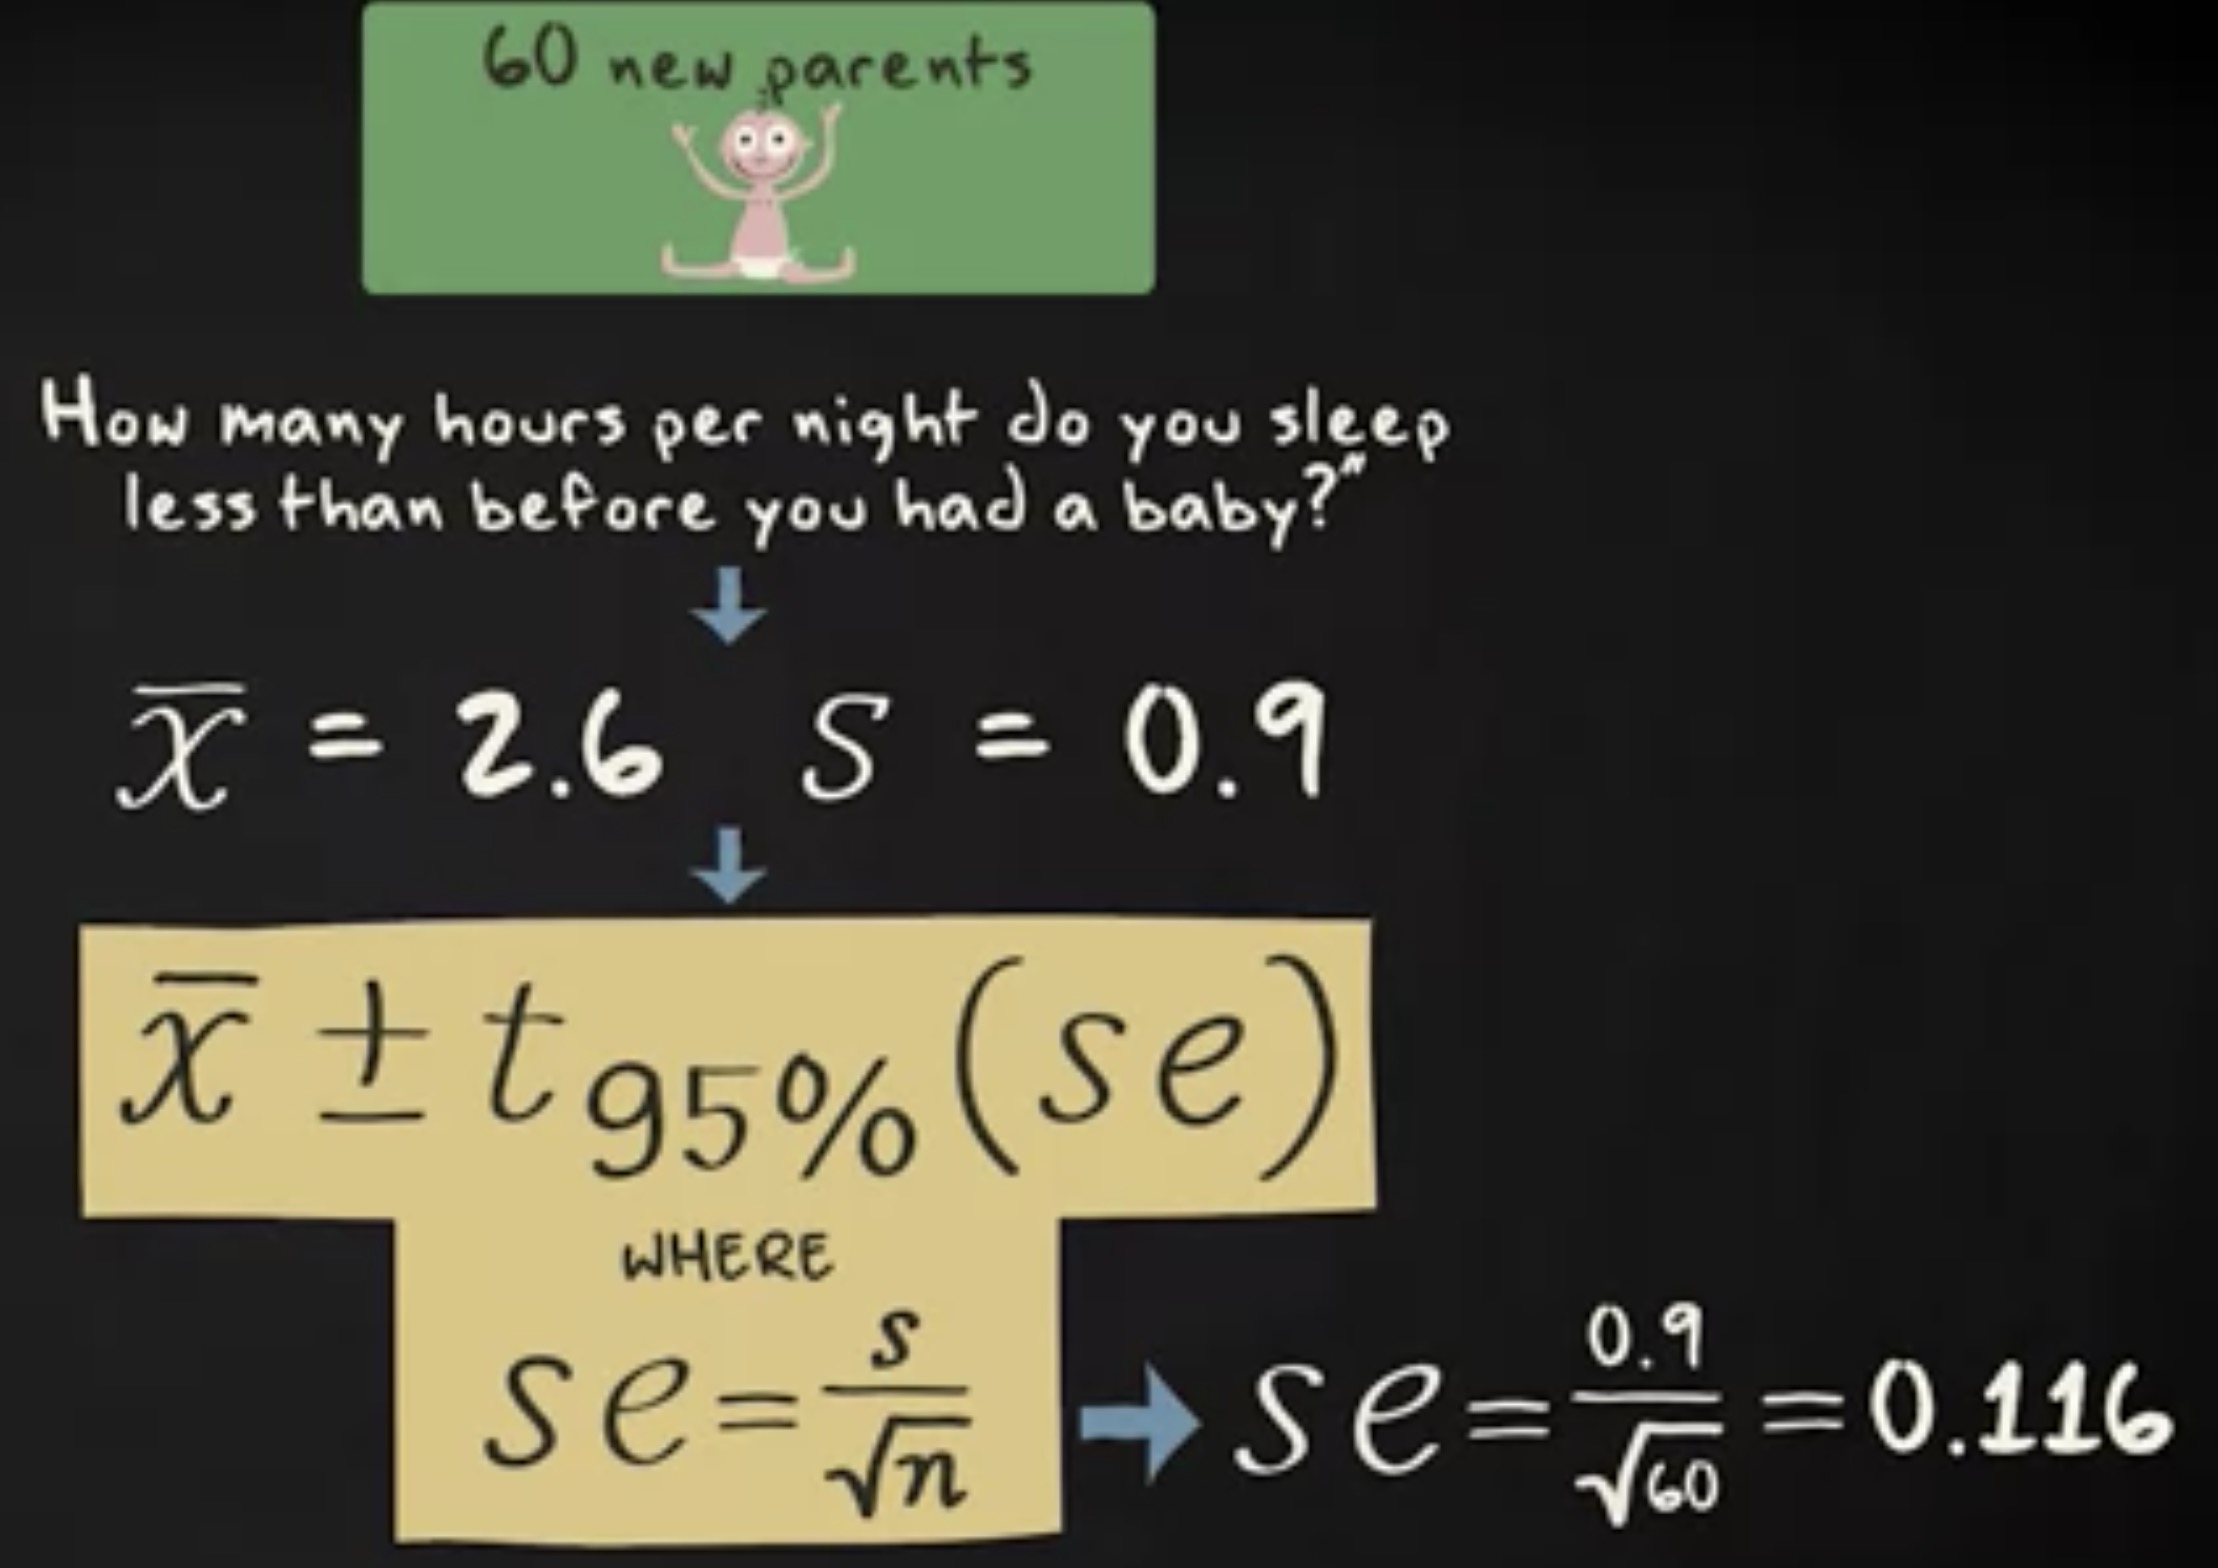 60 new parents
How many hours per night do you sleep
less than before you had a baby?"
x̄ = 2.6 s = 0.9
x̄ ± t95% (se)
WHERE
se = s/√n
se = 0.9/√60 = 0.116